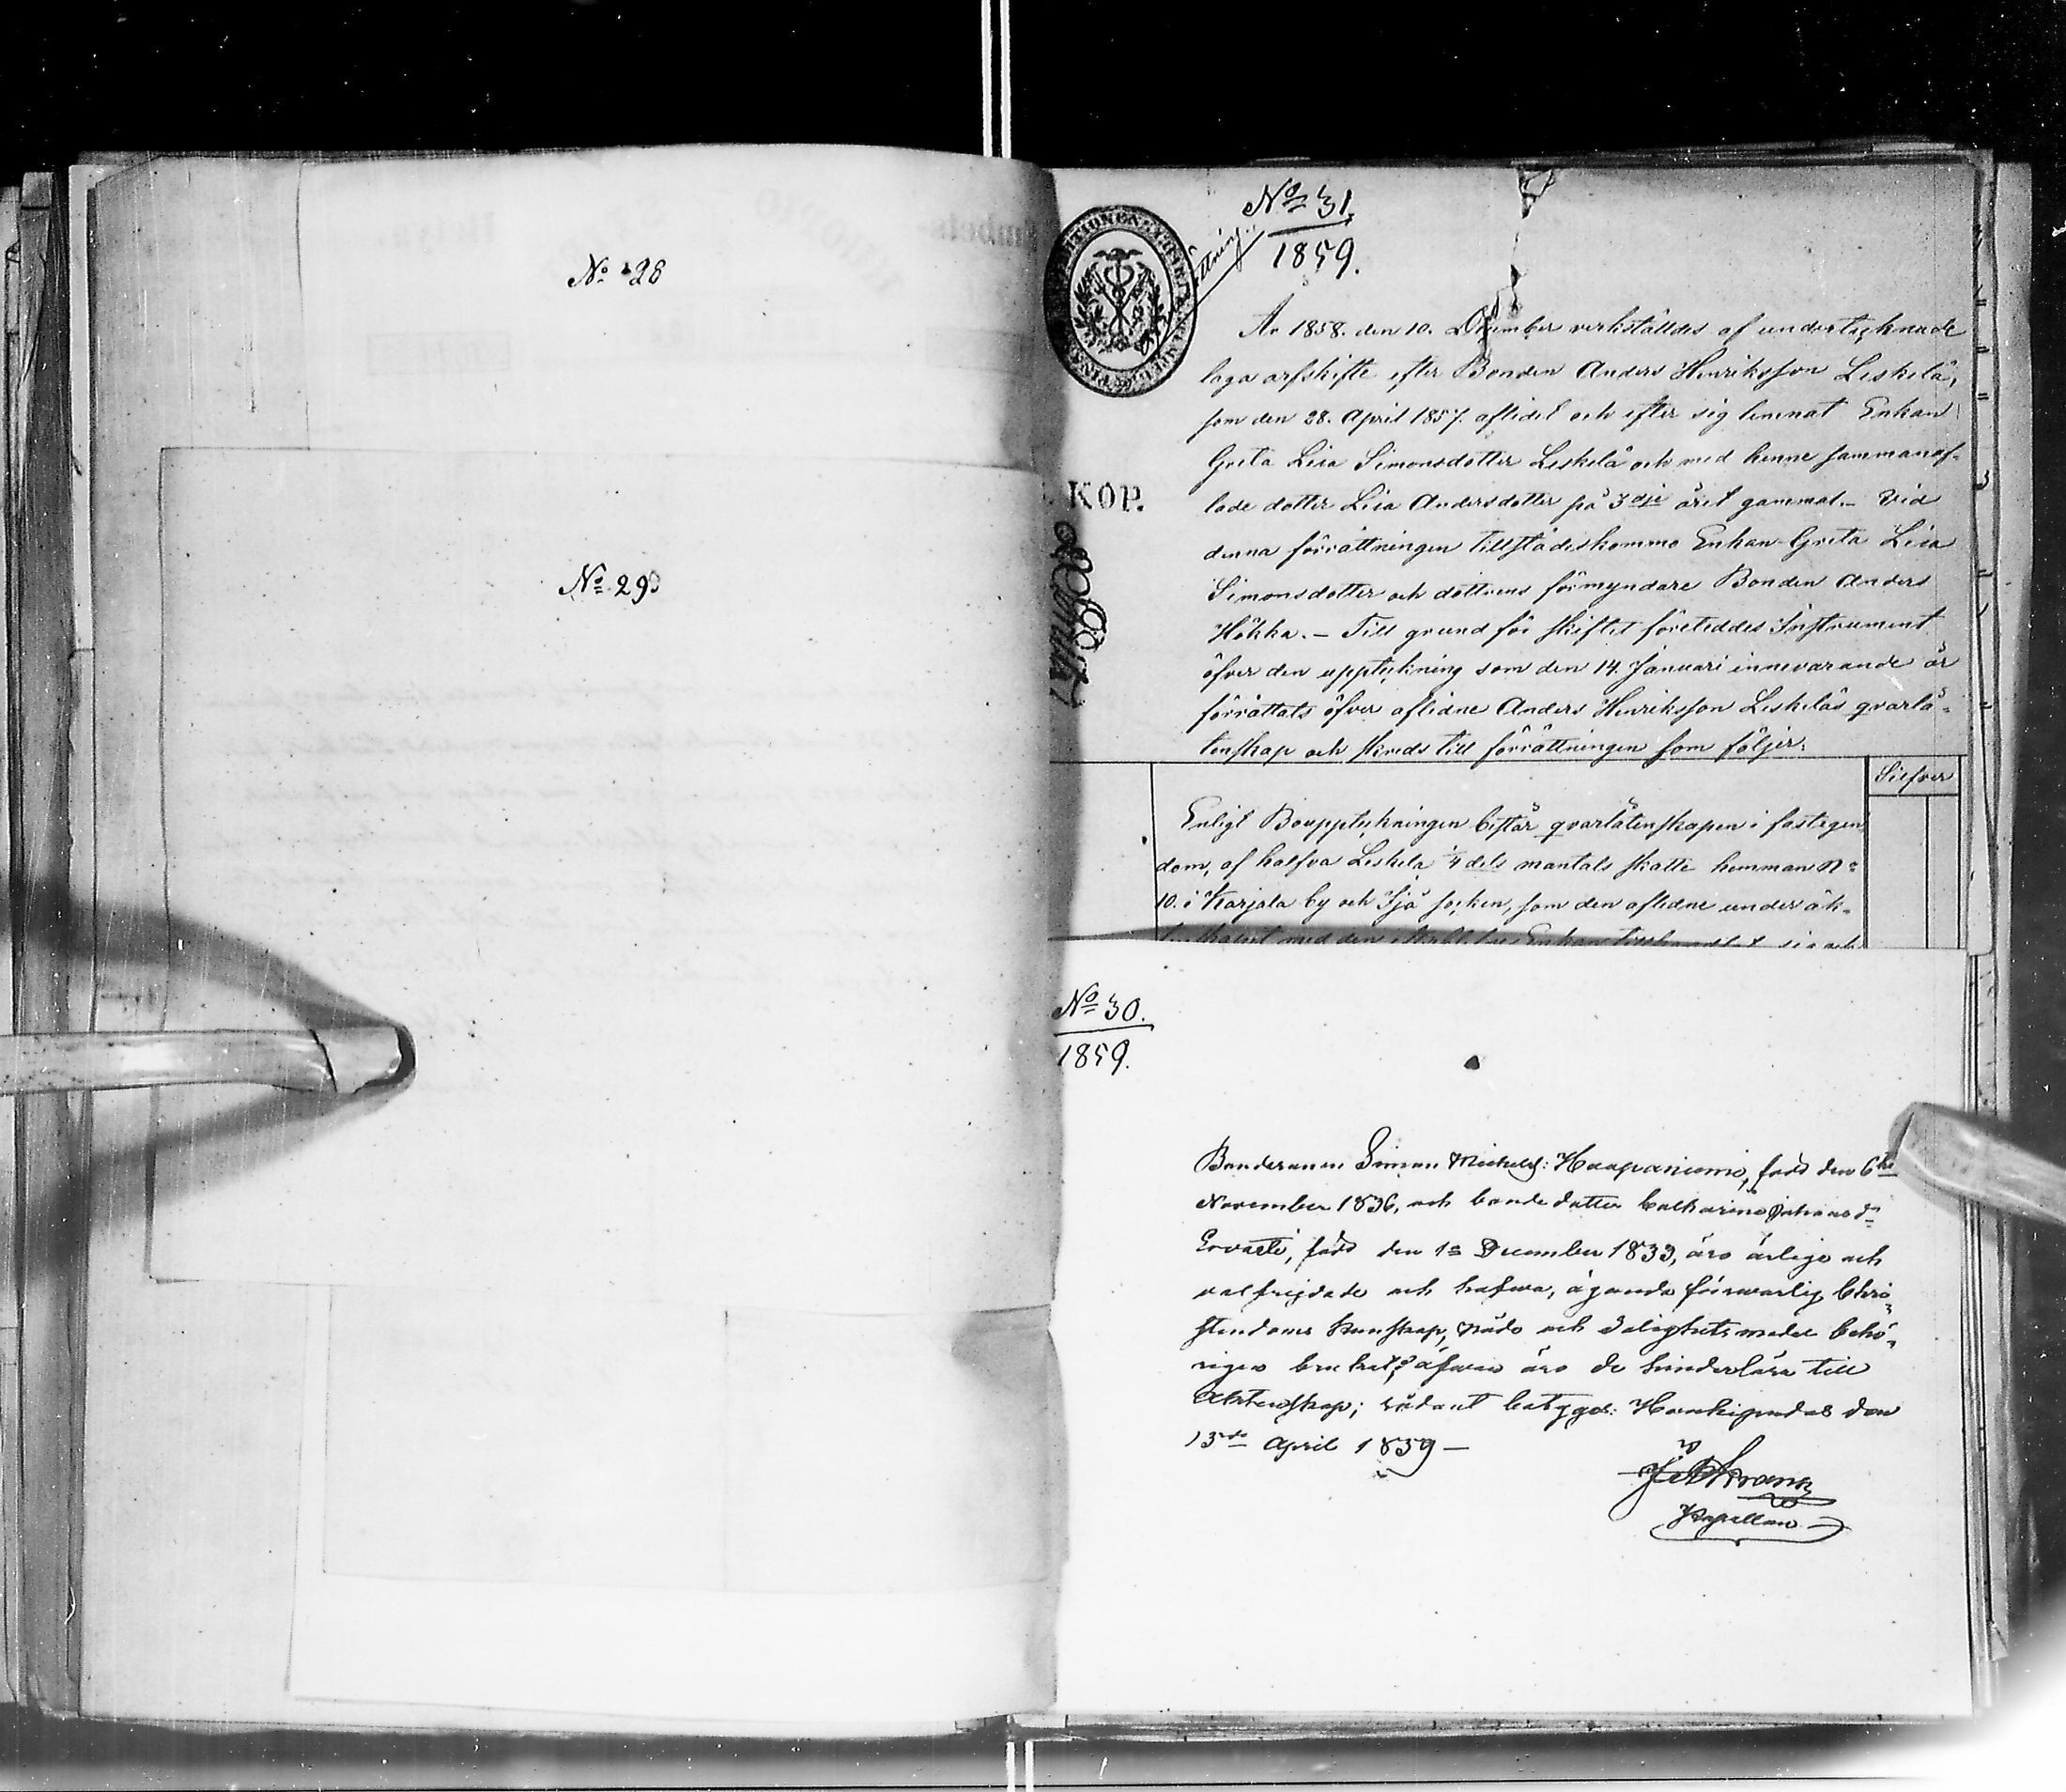 No 28
No 29
No 31.
1859.
KOP.
År 1858. den 10. December verkställdes af undertecknade
laga arfskifte efter Bonden Anders Henriksson Leskelä,
som den 28. April 1857. aflidit och efter sig lemnat Enkan
Greta Lisa Simonsdotter Leskelä och med henne sammanaf-
lade dotter Lisa Andersdotter på 3dje året gammal. – Vid
denna förrättningen tillstädeskommo Enkan Greta Lisa
Simonsdotter och dottrens förmyndare Bonden Anders
Hökka. – Till grund för skiftet företeddes Instrument
öfver den uppteckning som den 14. Januari innevarande år
förrättats öfver aflidne Anders Henriksson Leskeläs qvarlå-
tenskap och skreds till förrättningen som följer:
Silfver
Enligt Bouppteckningen består qvarlåtenskapen i fastegen
dom, af halfva Leskelä 1/4 dels mantals skatte hemman No
10. i Karjala by och Ijå socken, som den aflidne under äk-
tenskapet med den efterlefde Enkan tillhandlat sig och
No 30.
1859.
Bondesonen Simon Michelss: Haapaniemi, född den 6te
November 1836, och bonde dotter Catharina Johansdr
Ervasti, född den 1s December 1833, äro ärlige och
välfrejdade och hafwa, ägande förswarlig Chri-
stendoms kunskap, nåde och salighets medel behö-
rigen brukat; äfwen äro de hinderlösa till
Äktenskap; sådant betygas: Haukipudas den
13de April 1859 –
Kapellan